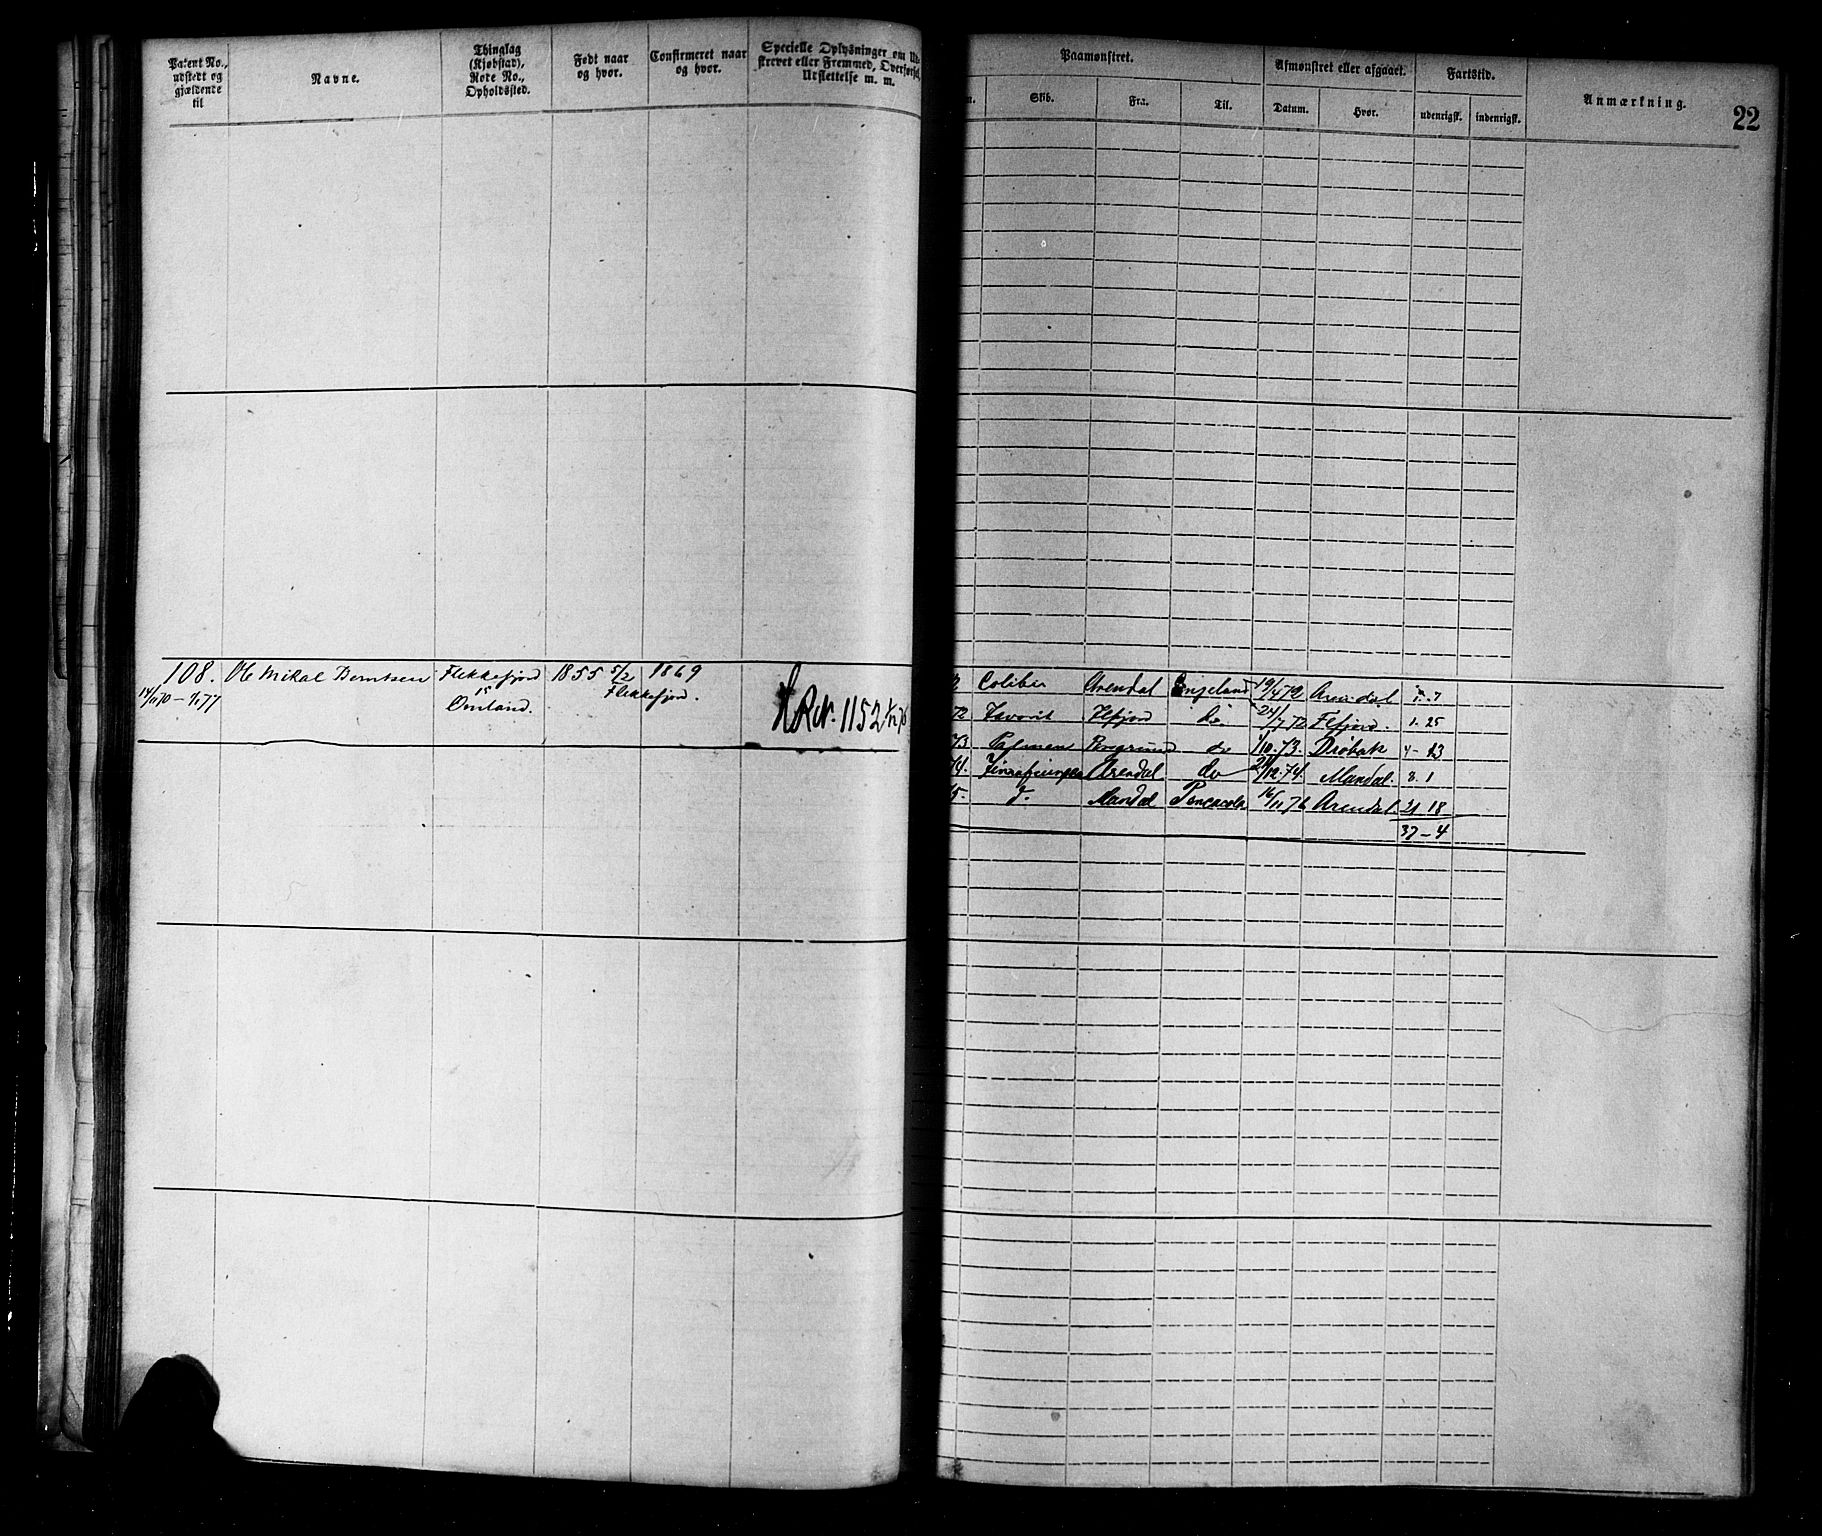 Patent No., udstedt og gjældende til
Navne.
Thinglag (Kjøbstad), Rote No., Opholdssted.
Født naar og hvor.
Confirmeret naar og hvor.
Specielle Oplysninger om Ud-
skrevet eller Fremmed, Overførsel,
Udslettelse m. m.
108. Ole Mikal Berntsen Flekkefjord 1855 5/2 1869
15 Flekkefjord.
HRN. 1152
Paamønstret.
Afmønstret eller afgaaet.
Fartstid.
Anmærkning.
22
Skib. Fra. Til. Datum. Hvor. udenrigsk. indenrigsk.
Colibri Arendal Engeland 19/4 72 Arendal 1. 7
72 Favorit Flfjord do 24/7 72 Flfjord. 1. 25
73 Palmen do 1/10. 73. Drøbak 4 - 13
74. Arendal do 12. 74. Mandal. 8. 1
5. D. Mandal Pencacola 16/11 76 Arendal. 21 18
37 - 4